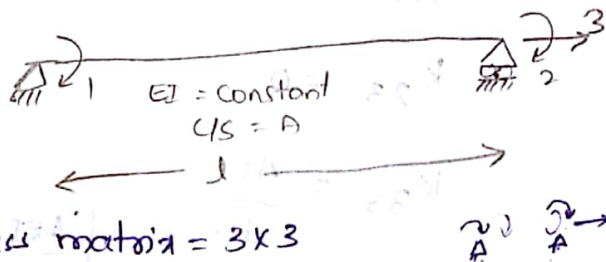 3
1
2
EI = constant
C/S = A
l
matrix = 3x3